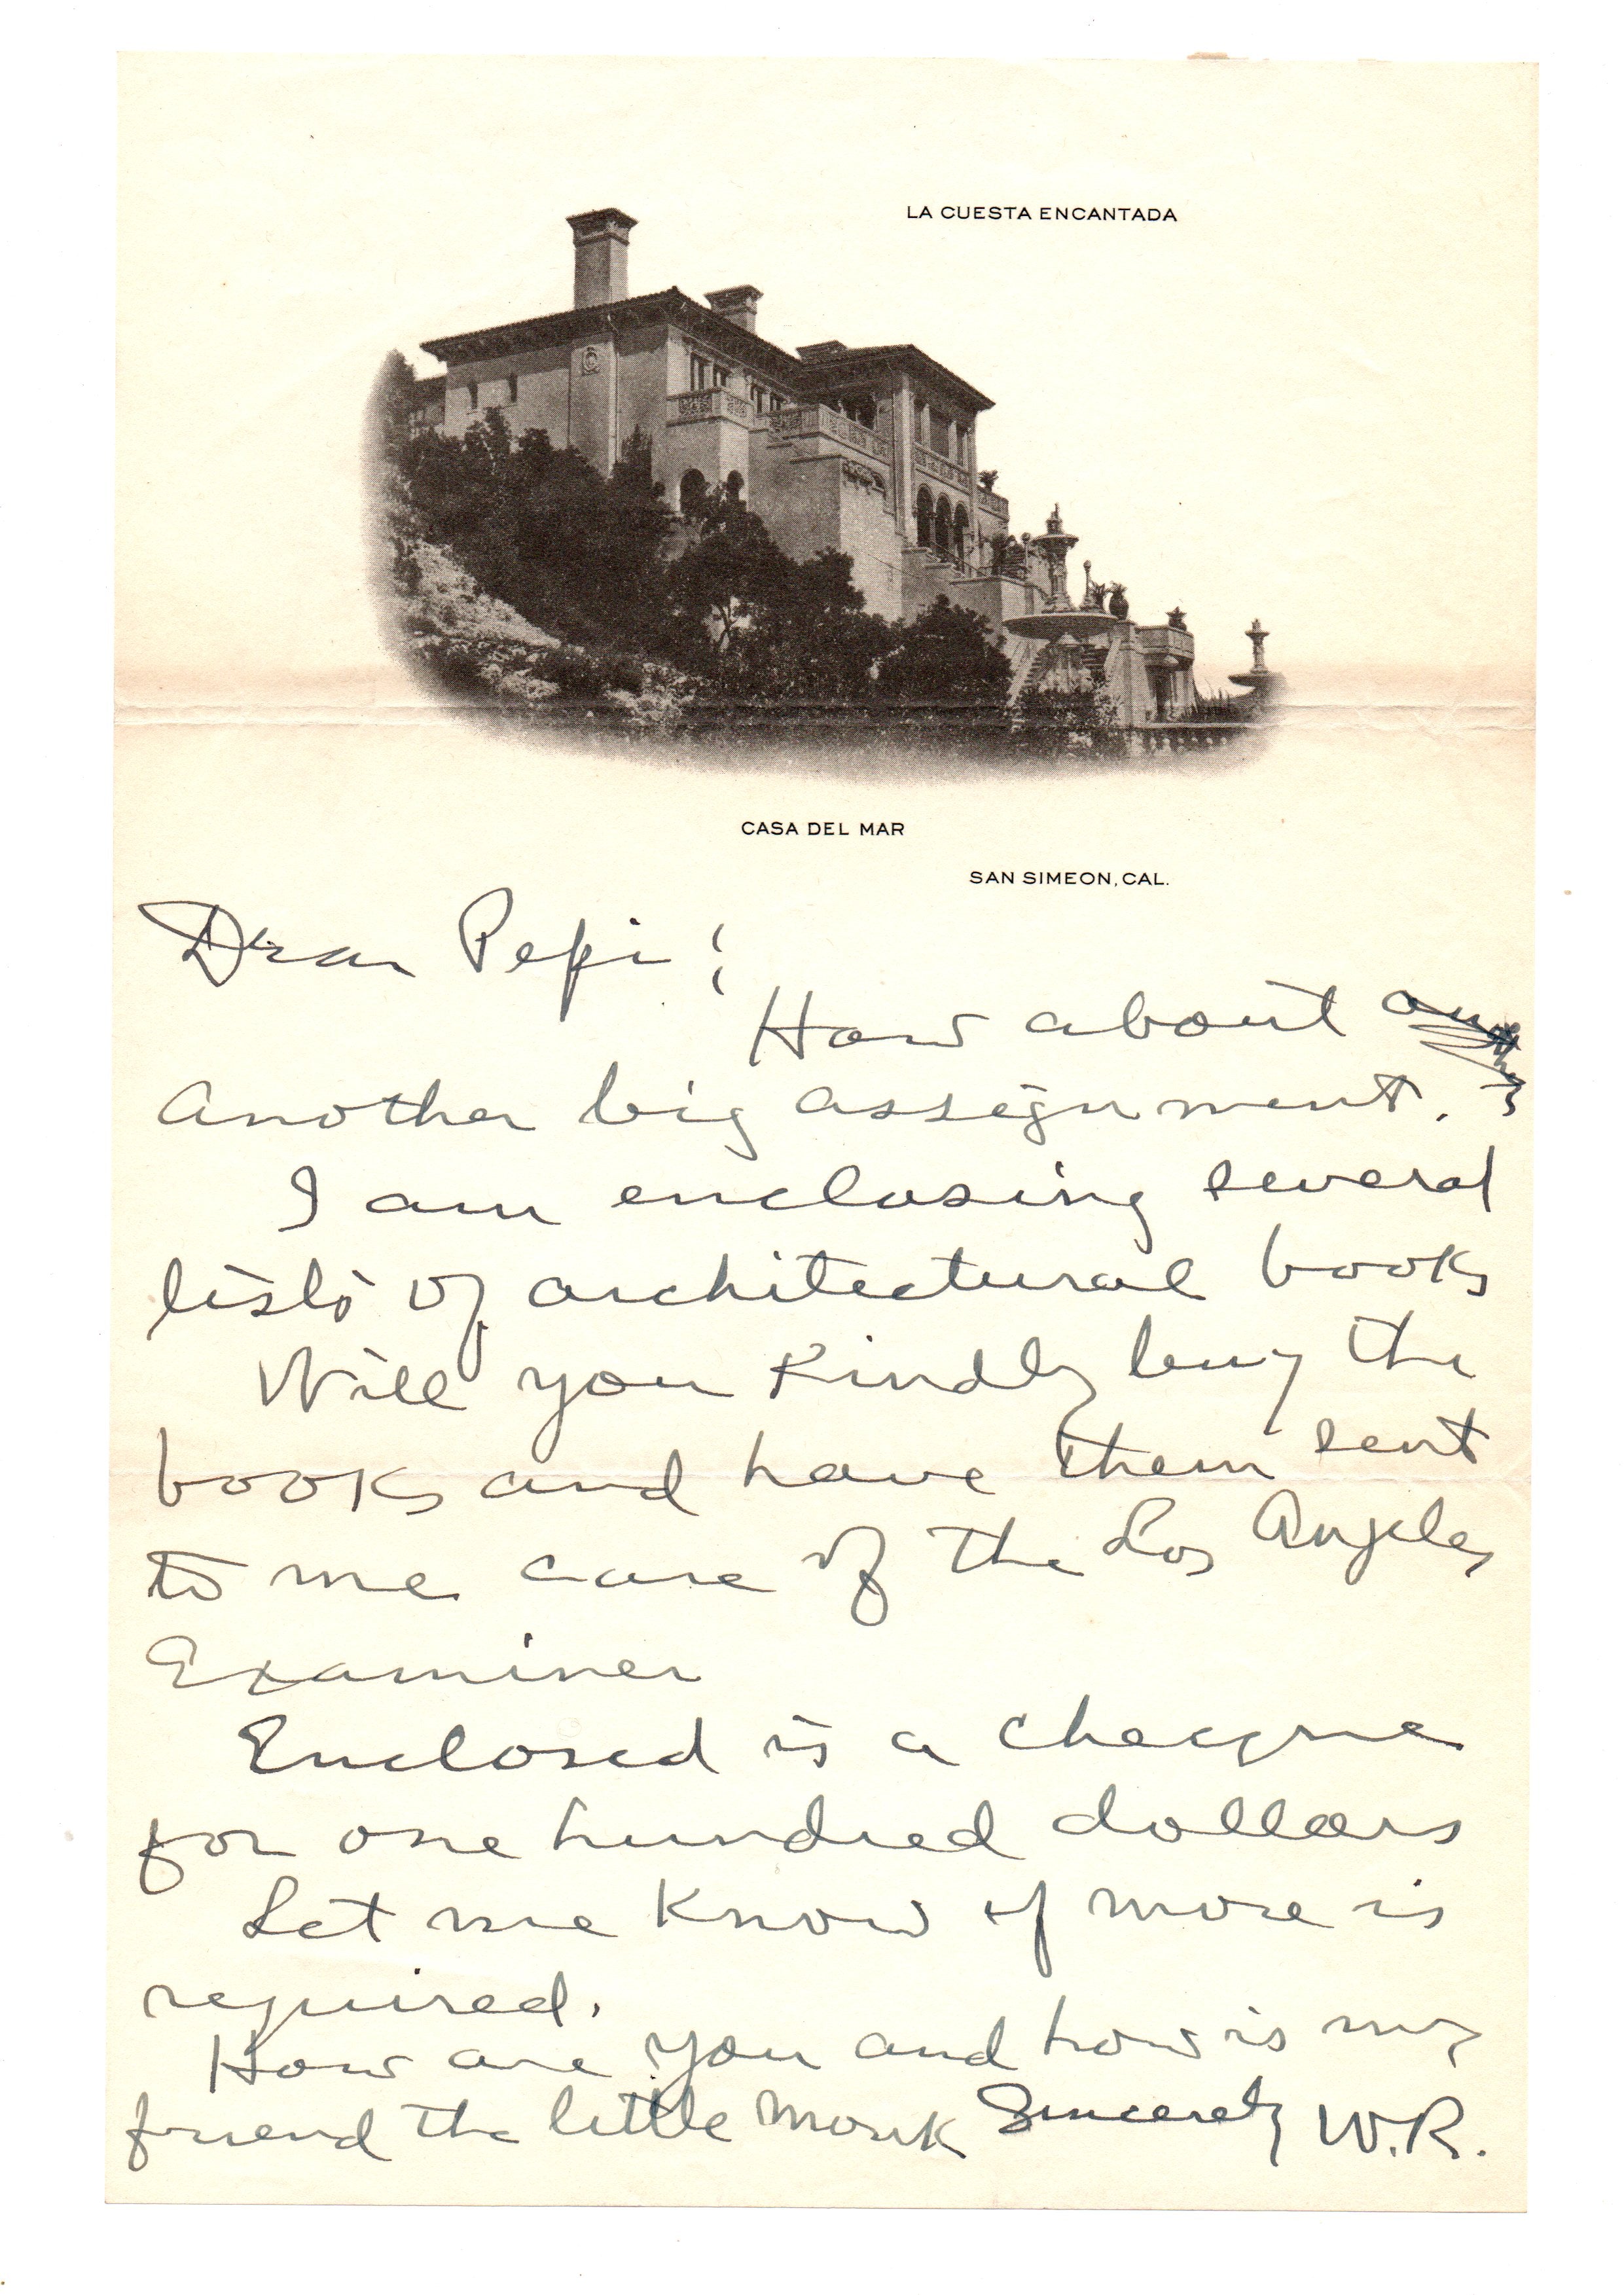 LA CUESTA ENCANTADA
CASA DEL MAR
SAN SIMEON, CAL.
Dear Pepi:
How about
another big assignment.
I am enclosing several
lists of architectural books
Will you kindly buy the
books and have them sent
to me care of the Los Angeles
Examiner
Enclosed is a cheque
for one hundred dollars
Let me know if more is
required.
How are you and how is my
friend the little monk Sincerely W.R.